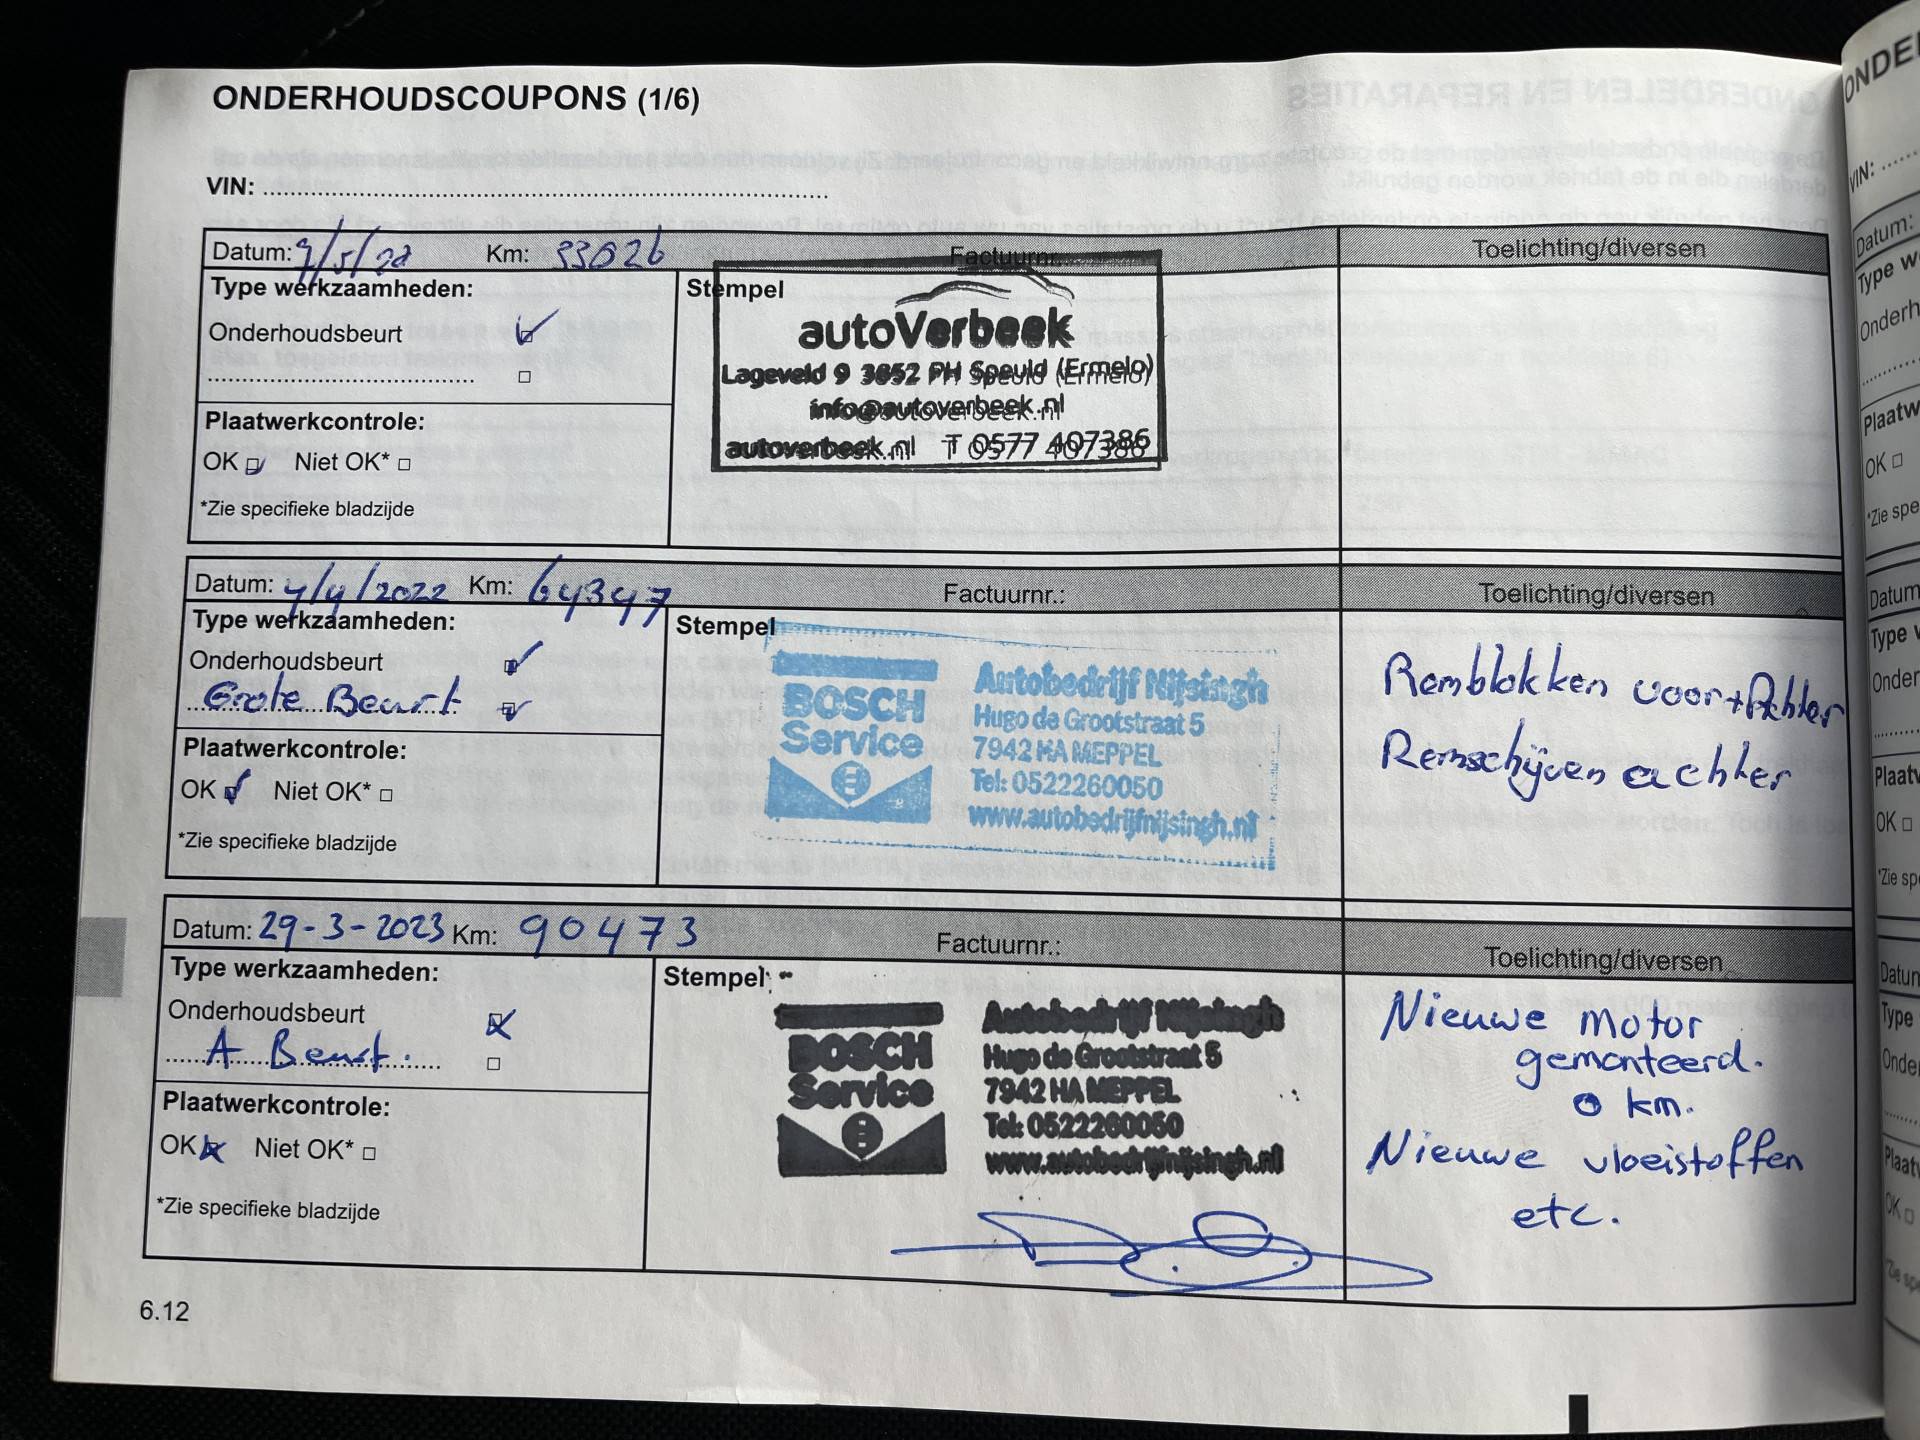 ONDERHOUDSCOUPONS (1/6)
VIN: ........................................................................
Datum: Km: 33026 Factuurnr.: Toelichting/diversen
Type werkzaamheden:
Stempel
Onderhoudsbeurt
autoVerbeek
Lageveld 9 3852 PH Speuld (Ermelo)
info@autoverbeek.nl
autoverbeek.nl T 0577 407386
Plaatwerkcontrole:
OK Niet OK*
*Zie specifieke bladzijde
Datum: 4/4/2022 Km: 64347 Factuurnr.: Toelichting/diversen
Type werkzaamheden:
Stempel
Onderhoudsbeurt
Grote Beurt
BOSCH
Service
Autobedrijf Nijsingh
Hugo de Grootstraat 5
7942 HA MEPPEL
Tel: 0522260050
www.autobedrijfnijsingh.nl
Remblokken voor+Achter
Remschijven achter
Plaatwerkcontrole:
OK Niet OK*
*Zie specifieke bladzijde
Datum: 29-3-2023 Km: 90473 Factuurnr.: Toelichting/diversen
Type werkzaamheden:
Stempel
Onderhoudsbeurt
A Beurt.
BOSCH
Service
Autobedrijf Nijsingh
Hugo de Grootstraat 5
7942 HA MEPPEL
Tel: 0522260050
www.autobedrijfnijsingh.nl
Nieuwe motor
gemonteerd.
0 km.
Nieuwe vloeistoffen
etc.
Plaatwerkcontrole:
OK Niet OK*
*Zie specifieke bladzijde
6.12